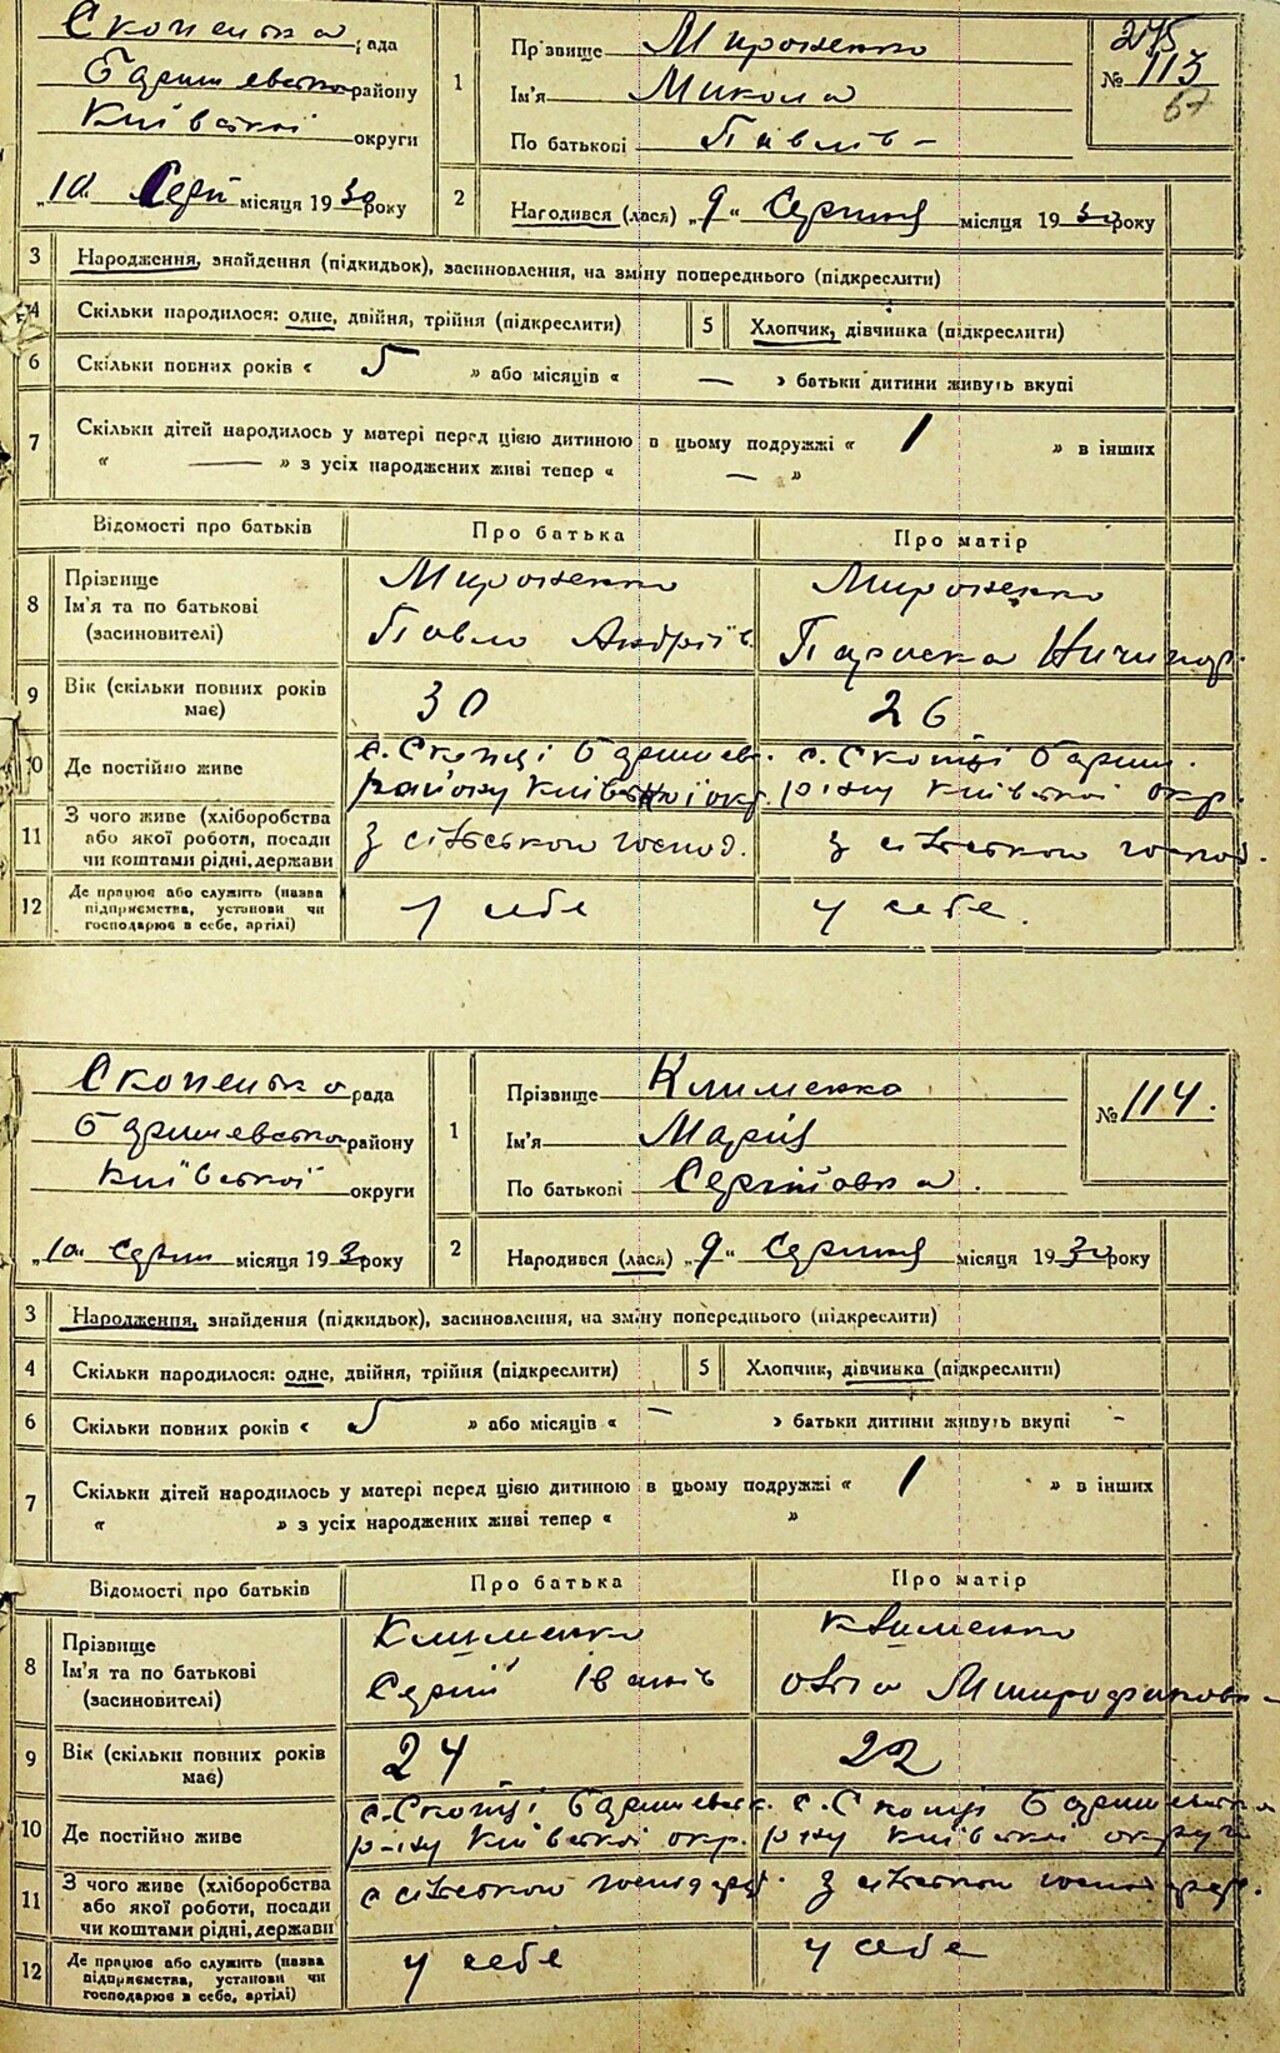 Скопецька рада
Баришевськ району
Київської округи
„10" Серп місяця 1930 року
1 Прізвище Мироненко
Ім'я Микола
По батькові Павлів -
275
№ 113
67
2 Народився (лася) „9" Серпня місяця 1930 року
3 Народження, знайдення (підкидьок), засиновлення, на зміну попереднього (підкреслити)
4 Скільки народилося: одне, двійня, трійня (підкреслити) 5 Хлопчик, дівчинка (підкреслити)
6 Скільки повних років « 5 » або місяців « — » батьки дитини живуть вкупі
7 Скільки дітей народилось у матері перед цією дитиною в цьому подружжі « 1 » в інших
« — » з усіх народжених живі тепер « — »
Відомості про батьків Про батька Про матір
8 Прізвище Мироненко Мироненко
Ім'я та по батькові Павло Андріїв Параска Ничипор.
(засиновителі)
9 Вік (скільки повних років 30 26
має)
10 Де постійно живе с. Скопці Баришев. с. Скопці Бариш.
району Київської окр. р-ну Київської окр.
11 З чого живе (хліборобства
або якої роботи, посади З сільськоо господ. З сільськоо господ.
чи коштами рідні, держави
12 Де працює або служить (назва
підприємства, установи чи У себе У себе.
господарює в себе, артілі)
Скопецька рада
Баришевськ району
Київської округи
„10" Серпн місяця 1930 року
1 Прізвище Клименко
Ім'я Марія
По батькові Сергійовна.
№ 114.
2 Народився (лася) „9" Серпня місяця 1930 року
3 Народження, знайдення (підкидьок), засиновлення, на зміну попереднього (підкреслити)
4 Скільки народилося: одне, двійня, трійня (підкреслити) 5 Хлопчик, дівчинка (підкреслити)
6 Скільки повних років « 5 » або місяців « — » батьки дитини живуть вкупі -
7 Скільки дітей народилось у матері перед цією дитиною в цьому подружжі « 1 » в інших
« » з усіх народжених живі тепер « »
Відомості про батьків Про батька Про матір
8 Прізвище Клименко Клименко
Ім'я та по батькові Сергій Іванів Ольга Митрофановна
(засиновителі)
9 Вік (скільки повних років 24 22
має)
10 Де постійно живе с. Скопці Баришевськ. с. Скопці Баришевськ
р-ну Київської окр. р-ну Київської округи
11 З чого живе (хліборобства
або якої роботи, посади з сільськоо господар. З сільськоо господар.
чи коштами рідні, держави
12 Де працює або служить (назва
підприємства, установи чи У себе У себе
господарює в себе, артілі)